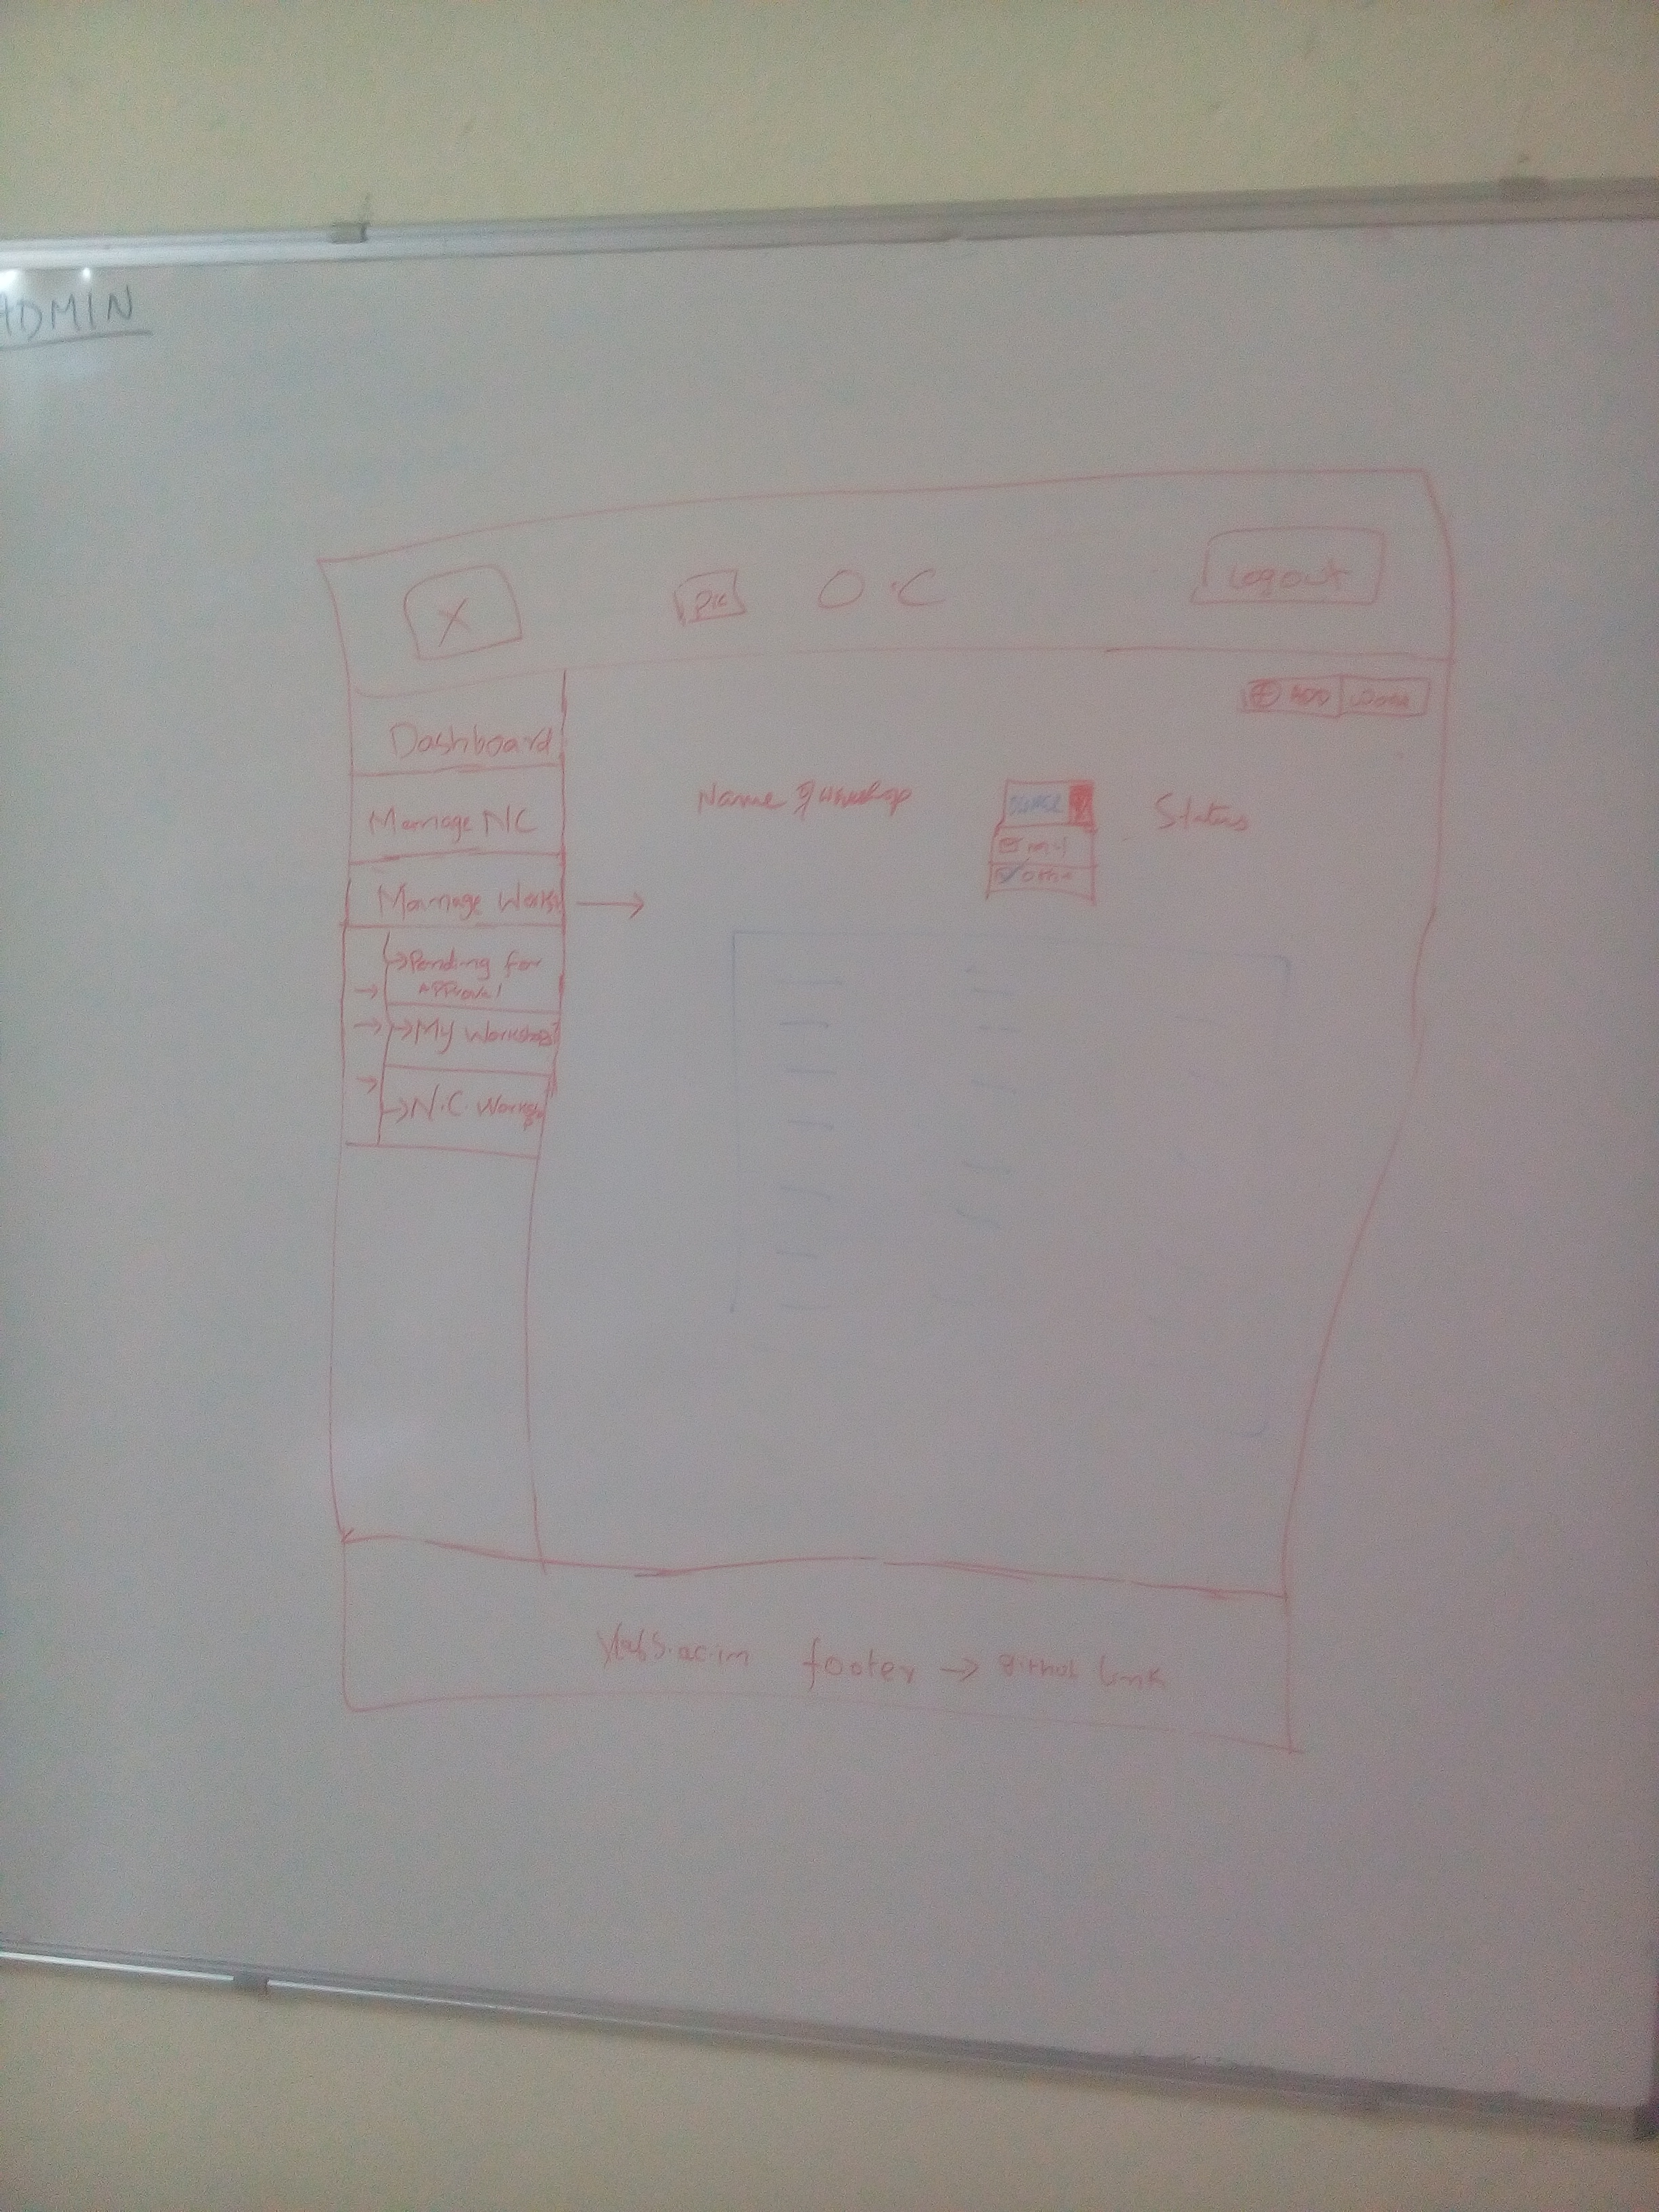 ADMIN
X
pic
O.C
Logout
ADD
Dashboard
Manage NC
Manage Works
Pending for
Approval
My Workshops
N.C. Worksp
Name of workshop
Status
my
othe
vlabs.ac.in footer → github link